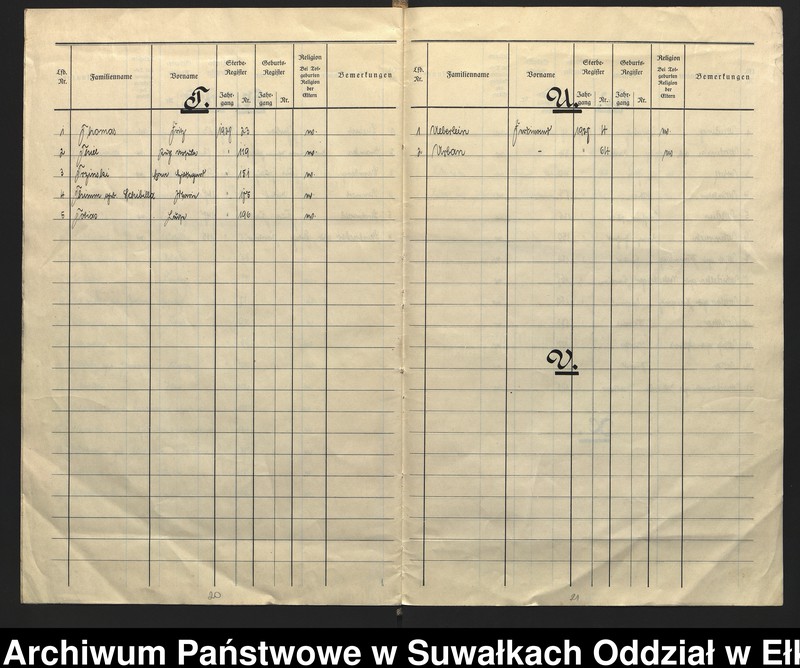 Lfd. Nr. Familienname Vorname Sterbe-Register Jahrgang Nr. Geburts-Register Jahrgang Nr. Religion Bei Totgeburten Religion der Eltern Bemerkungen
T.
1 Thomas Fritz 1939 23 ev.
2 Thiel 119 ev.
3 Trzinski " 151 ev.
4 Thimm geb. Schibilla " 178 ev.
5 Tobias " 196 ev.
20
Lfd. Nr. Familienname Vorname Sterbe-Register Jahrgang Nr. Geburts-Register Jahrgang Nr. Religion Bei Totgeburten Religion der Eltern Bemerkungen
U.
1 Ueberlein Ferdinand 1939 ev.
2 Urban - " 64 ev.
V.
21
Archiwum Państwowe w Suwałkach Oddział w Eł